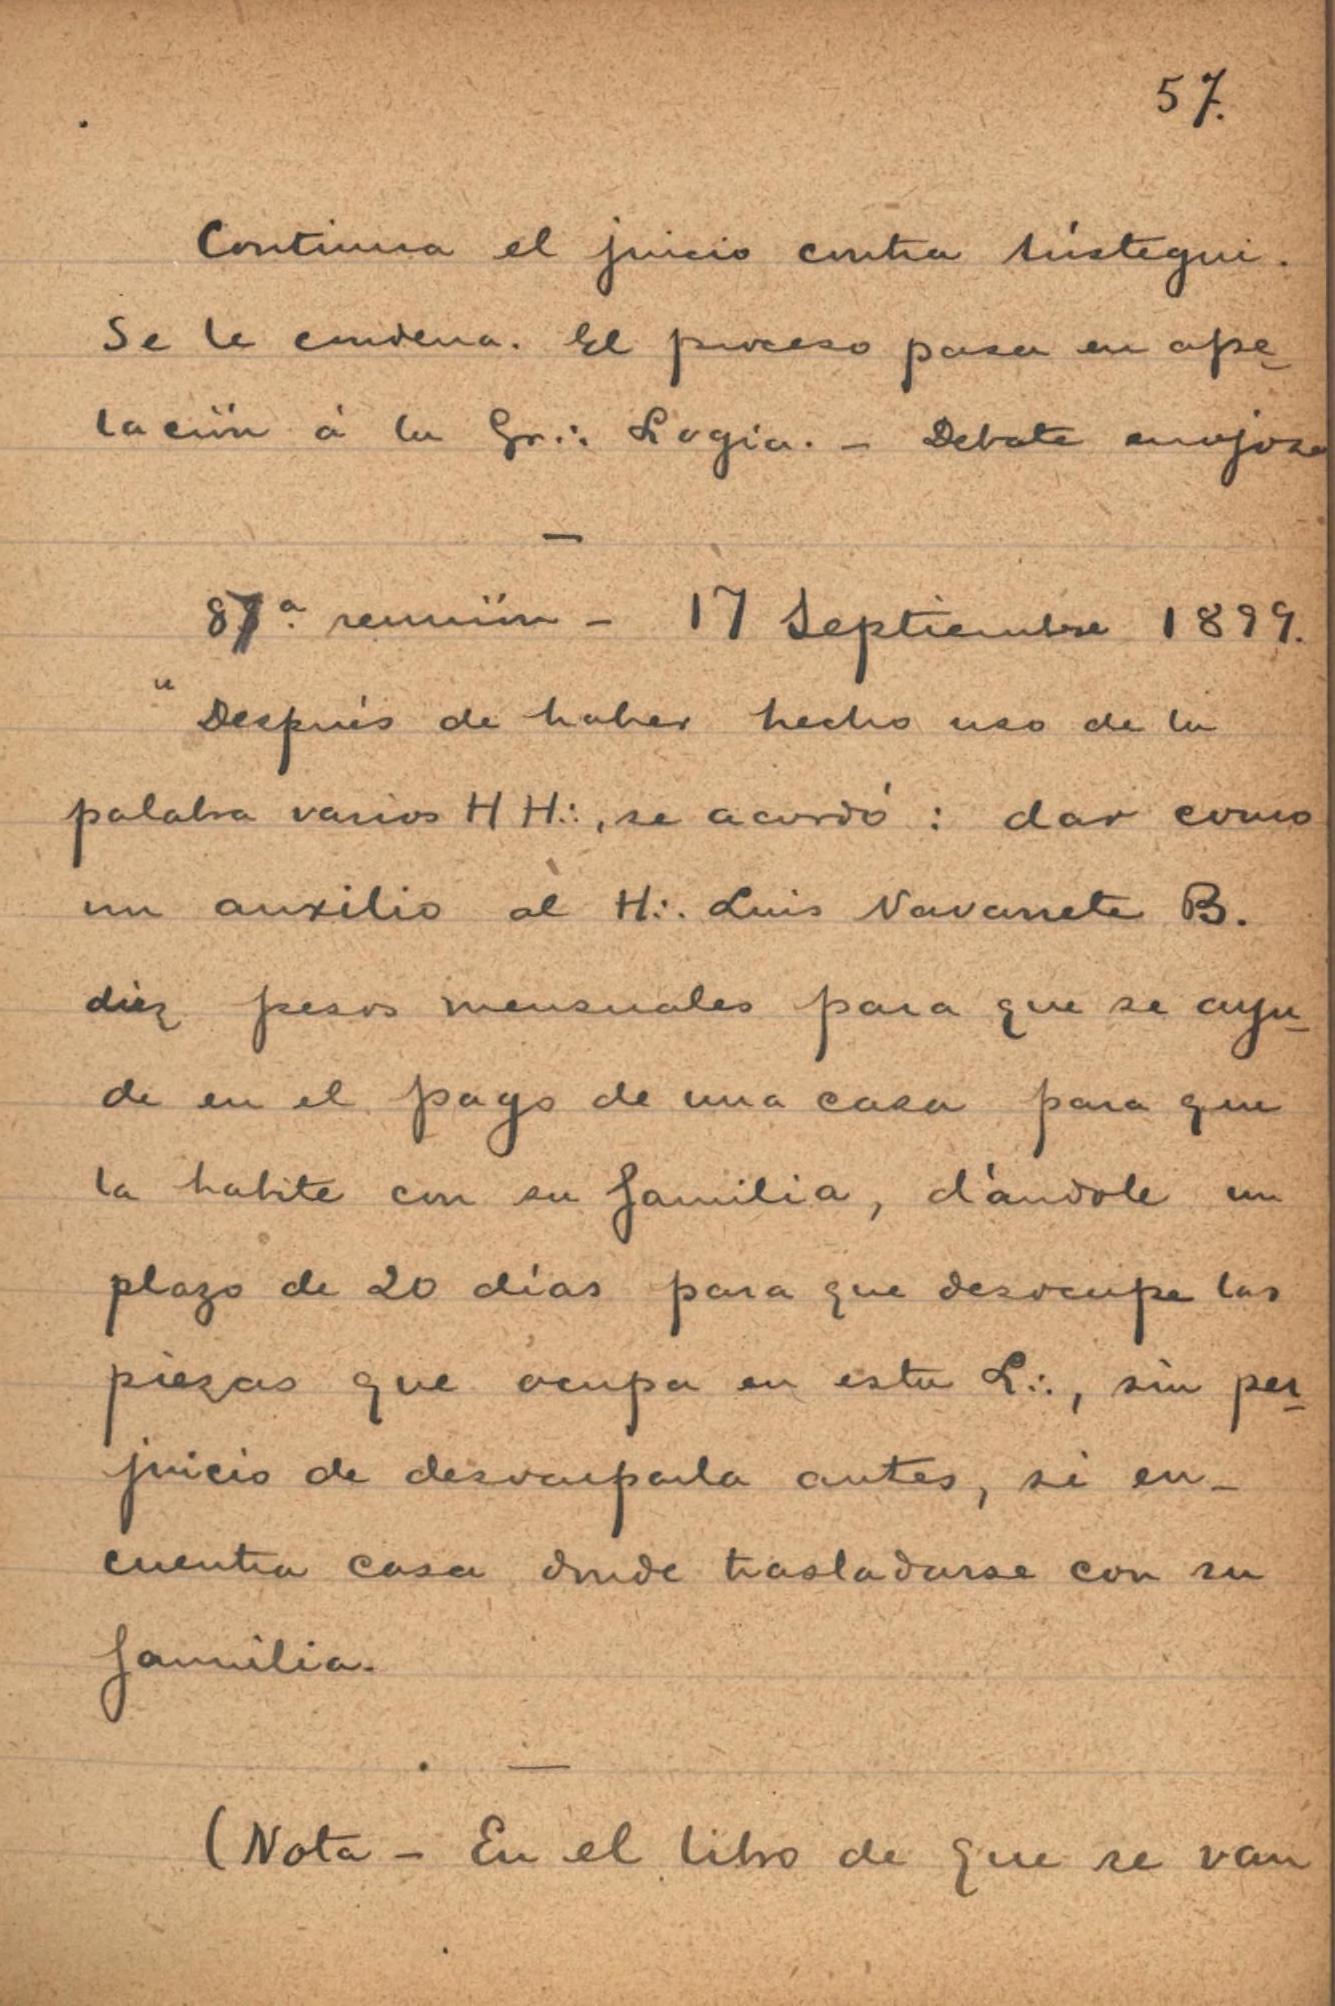 57.
Continua el juicio contra Aústegui.
Se le condena. El proceso pasa en ape-
lación á la Gr∴ Logia. – Debate enojoso
—
87ª reunión – 17 Septiembre 1899.
"Después de haber hecho uso de la
palabra varios HH∴, se acordó: dar como
un auxilio al H∴ Luis Navarrete B.
diez pesos mensuales para que se ayu-
de en el pago de una casa para que
la habite con su familia, dándole un
plazo de 20 días para que desocupe las
piezas que ocupa en esta L∴, sin per-
juicio de desocuparla antes, si en-
cuentra casa donde trasladarse con su
familia.
—
(Nota – En el libro de que se van